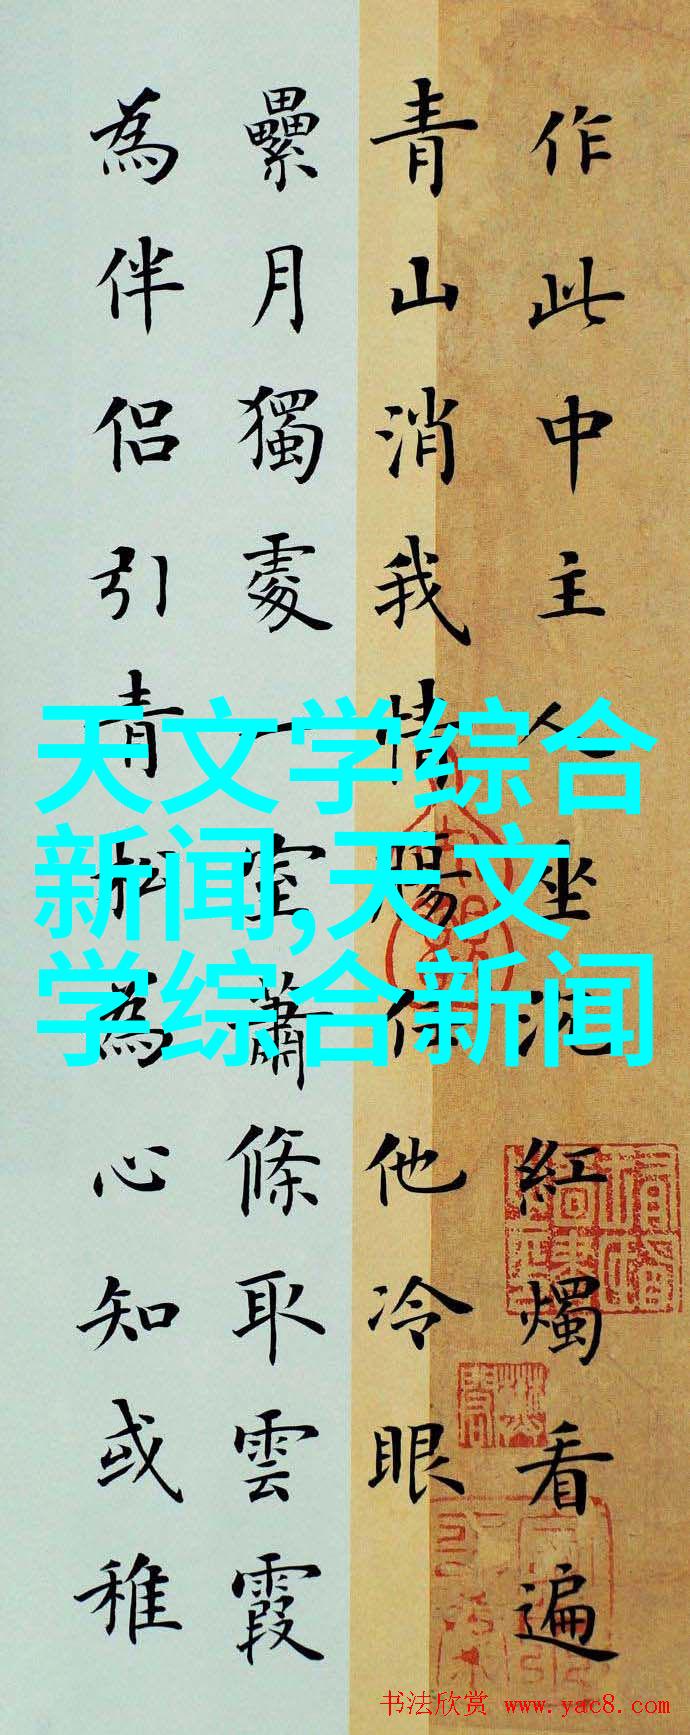 作此中主人坐沉紅燭看遍
青山消我情腸任他冷眼
纍月獨處一室蕭條取雲霞
為伴侶引青松為心知或稚
天文学综合
新闻,天文
学综合新闻
书法欣赏 www.yac8.com